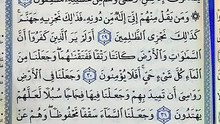 وَمَن يَقُلْ مِنْهُمْ إِنِّىٓ إِلَٰهٌ مِّن دُونِهِۦ فَذَٰلِكَ نَجْزِيهِ جَهَنَّمَ
كَذَٰلِكَ نَجْزِى ٱلظَّٰلِمِينَ ٢٩ أَوَلَمْ يَرَ ٱلَّذِينَ كَفَرُوٓا۟ أَنَّ
ٱلسَّمَٰوَٰتِ وَٱلْأَرْضَ كَانَتَا رَتْقًا فَفَتَقْنَٰهُمَا وَجَعَلْنَا مِنَ
ٱلْمَآءِ كُلَّ شَىْءٍ حَىٍّ أَفَلَا يُؤْمِنُونَ ٣٠ وَجَعَلْنَا فِى ٱلْأَرْضِ
رَوَٰسِىَ أَن تَمِيدَ بِهِمْ وَجَعَلْنَا فِيهَا فِجَاجًا سُبُلًا لَّعَلَّهُمْ
يَهْتَدُونَ ٣١ وَجَعَلْنَا ٱلسَّمَآءَ سَقْفًا مَّحْفُوظًا وَهُمْ عَنْ